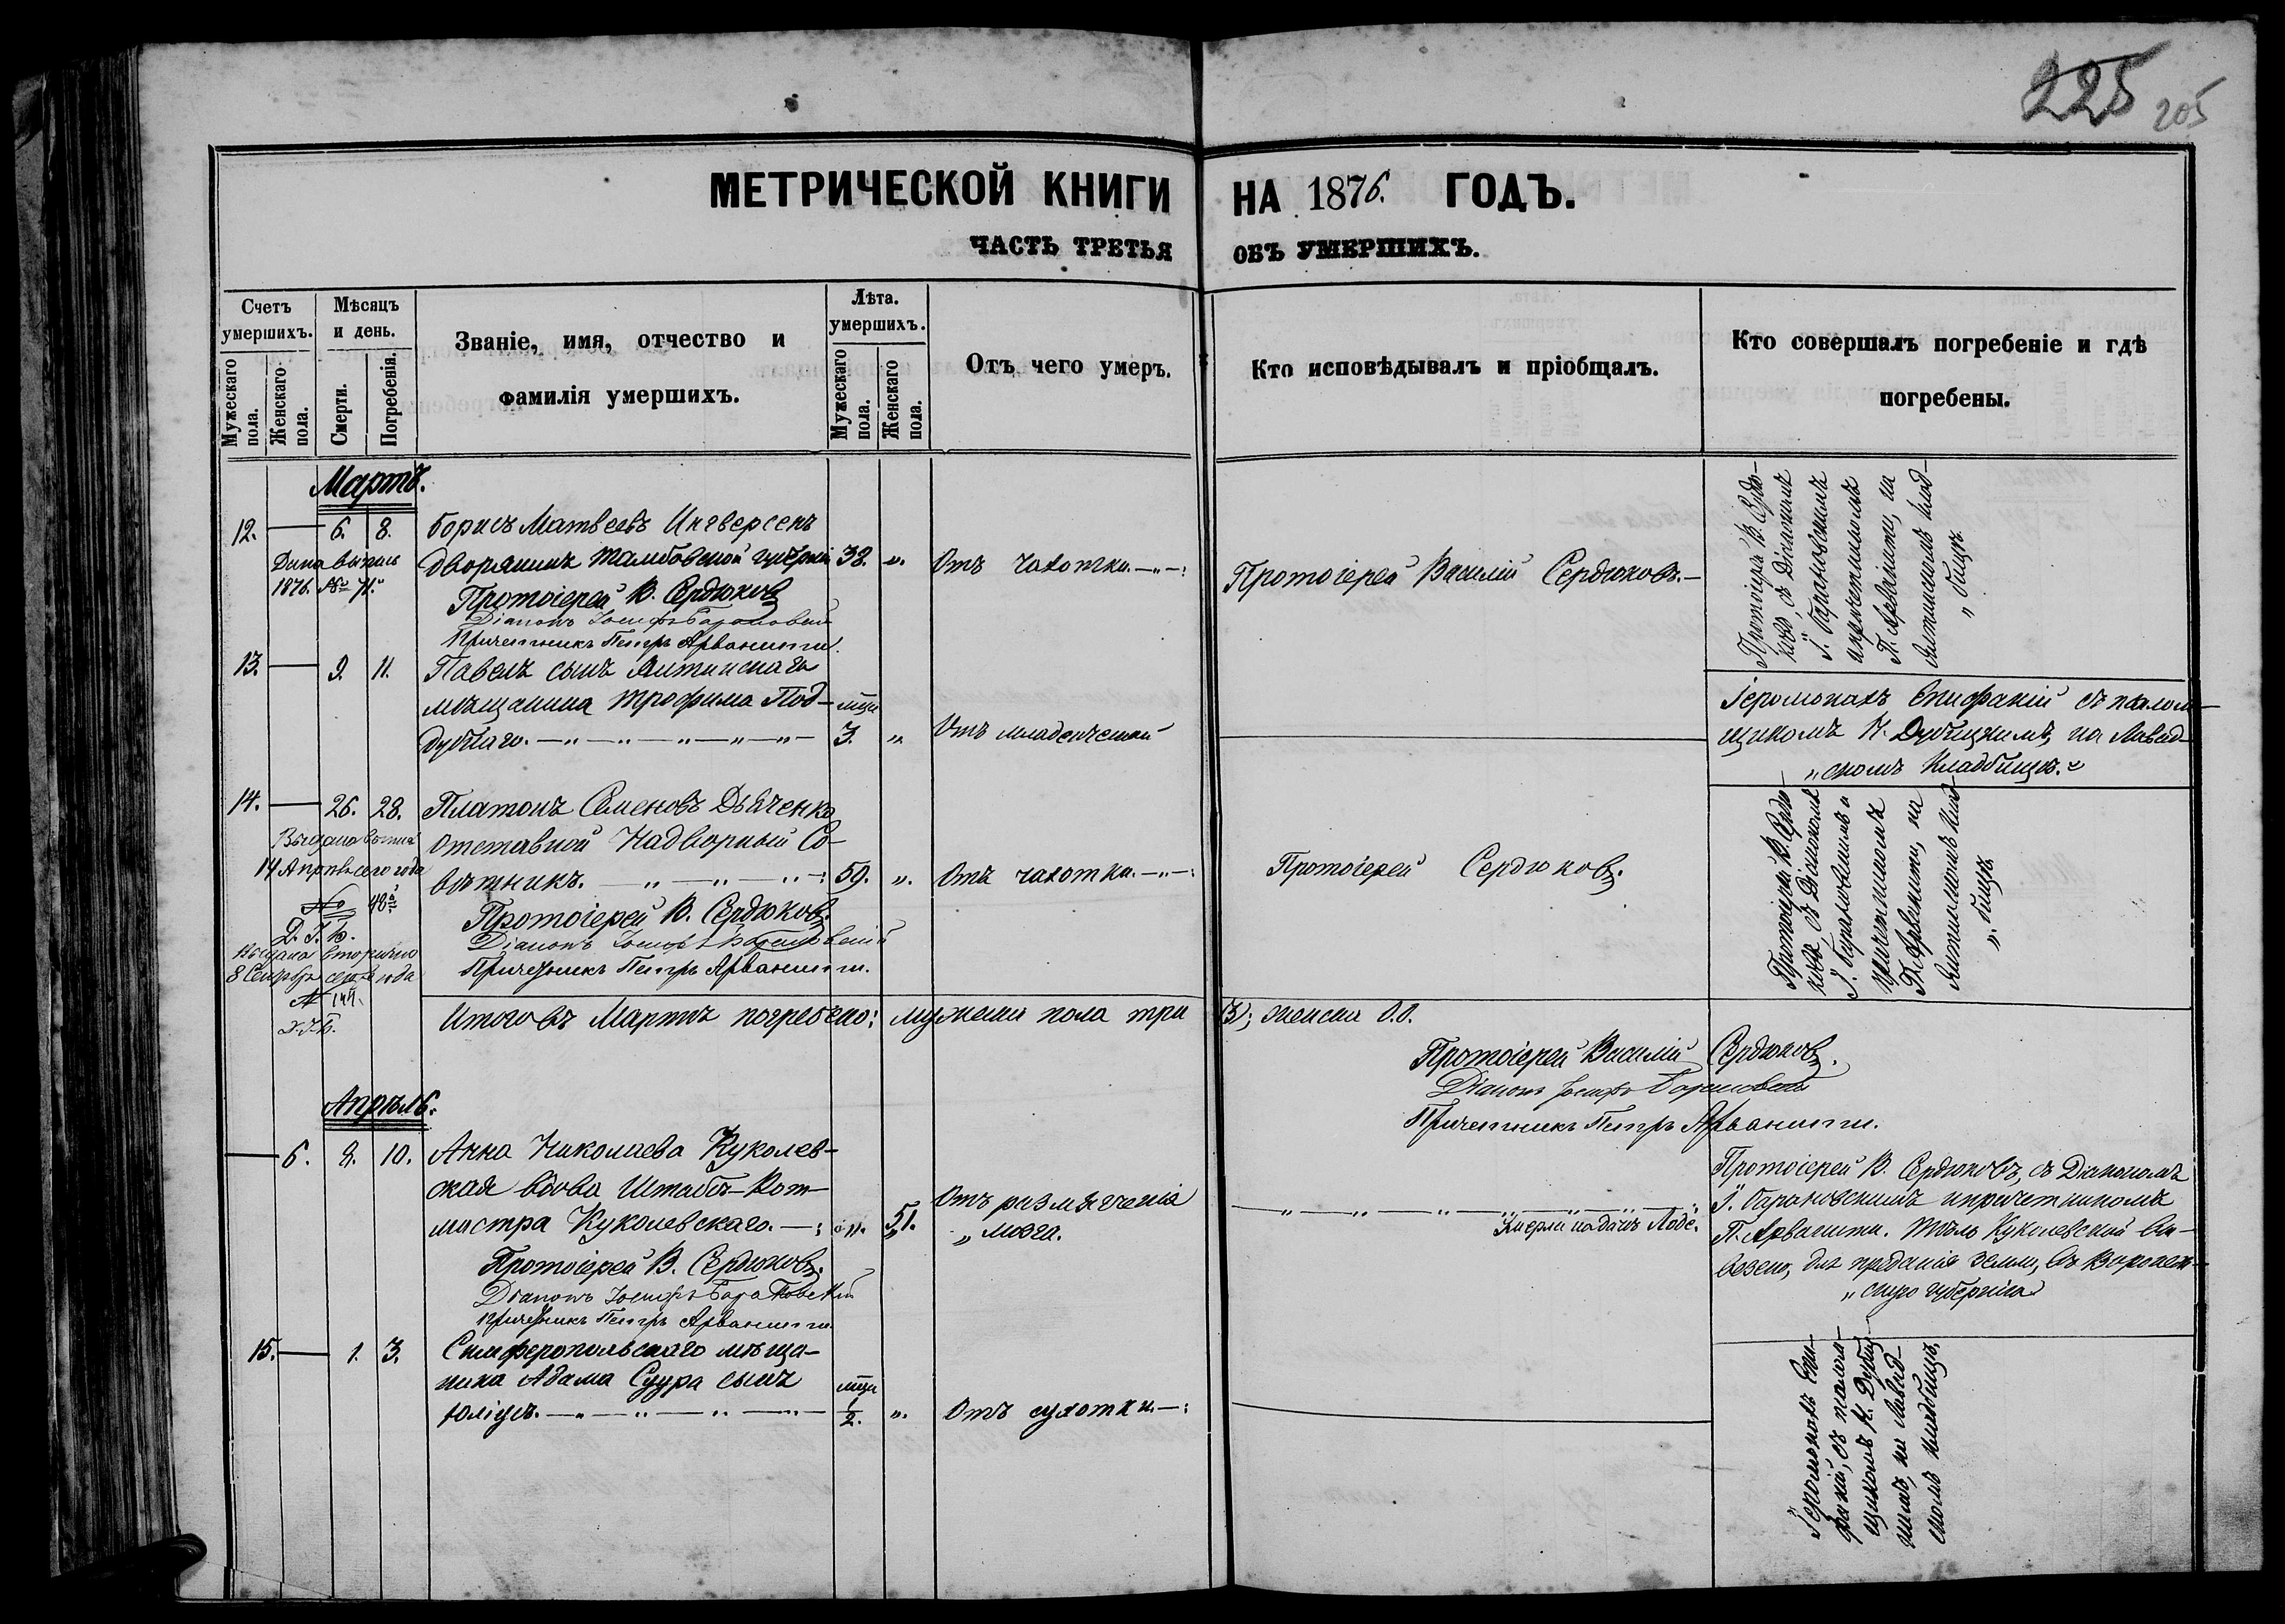 225 205
МЕТРИЧЕСКОЙ КНИГИ НА 1876. ГОДЪ.
ЧАСТЬ ТРЕТЬЯ ОБЪ УМЕРШИХЪ.
Счетъ умершихъ.
Мужескаго пола.
Женскаго пола.
Мѣсяцъ и день.
Смерти.
Погребенія.
Званіе, имя, отчество и
фамилія умершихъ.
Лѣта. умершихъ.
Мужескаго пола.
Женскаго пола.
Отъ чего умеръ.
Кто исповѣдывалъ и пріобщалъ.
Кто совершалъ погребеніе и гдѣ
погребены.
Мартъ.
12. — 6. 8. Борисъ Матвеевъ Ингверсенъ
дворянинъ Тамбовской губерніи 32. „. Отъ чахотки. —„—:
Дана выпись
1876. № 71.
Протоіерей В. Сердюковъ
Діаконъ Іосифъ Барановскій
Причетникъ Петръ Арванити.
Протоіерей Василій Сердюковъ. —
Протоіерей В. Сердю-
ковъ, съ Діакономъ
І. Барановскимъ
и причетникомъ
П. Арванити, на
Ялтинскомъ клад-
„бищѣ.
13. — 9. 11. Павелъ сынъ Ялтинскаго
мѣщанина Трофима Под- мца
дубнаго. —„—„—„—„—„— 3. „ Отъ младенческой
Іеромонахъ Епифаній съ псалом-
щикомъ Н. Дубицкимъ, на Ливад-
„скомъ кладбищѣ. „
14. — 26. 28. Платонъ Семеновъ Дьяченко
отставной Надворный Со-
вѣтникъ. —„—„—„—: 59. „. Отъ чахотки. —„—:
Выдана выпись
14 Апрѣля сего года
№ 48
Выдана вторично
8 Сентября сего года
№ 144.
Протоіерей В. Сердюковъ.
Діаконъ Іосифъ Барановскій
Причетникъ Петръ Арванити.
Протоіерей Сердюковъ.
Протоіерей В. Сердю-
ковъ, съ Діакономъ
І. Барановскимъ и
причетникомъ
П. Арванити, на
Ялтинскомъ клад-
„. бищѣ.
Итого въ Мартѣ погребено: мужеска пола три (3); женска 0.0.
Протоіерей Василій Сердюковъ.
Діаконъ Іосифъ Барановскій
Причетникъ Петръ Арванити.
Апрѣль.
— 6. 8. 10. Анна Николаева Куколев-
ская вдова Штабсъ-Рот-
мистра Куколевскаго. —: „. 51. Отъ размягченія
„ мозга.
Протоіерей В. Сердюковъ.
Діаконъ Іосифъ Барановскій
Причетникъ Петръ Арванити
Протоіерей В. Сердюковъ, съ Діакономъ
І. Барановскимъ и причетникомъ
П. Арванити. Тѣло Куколевской вы-
везено, для преданія земли, въ Воронеж-
„скую губернію
15. — 1. 3. Симферопольскаго мѣща-
нина Адама Суура сынъ мца
Юліусъ. —„—„—„—„— 1/2. „. Отъ сухотки. —:
Іеромонахъ Епи-
фаній, съ псалом-
щикомъ Н. Дубиц-
кимъ, на Ливад-
скомъ кладбищѣ.